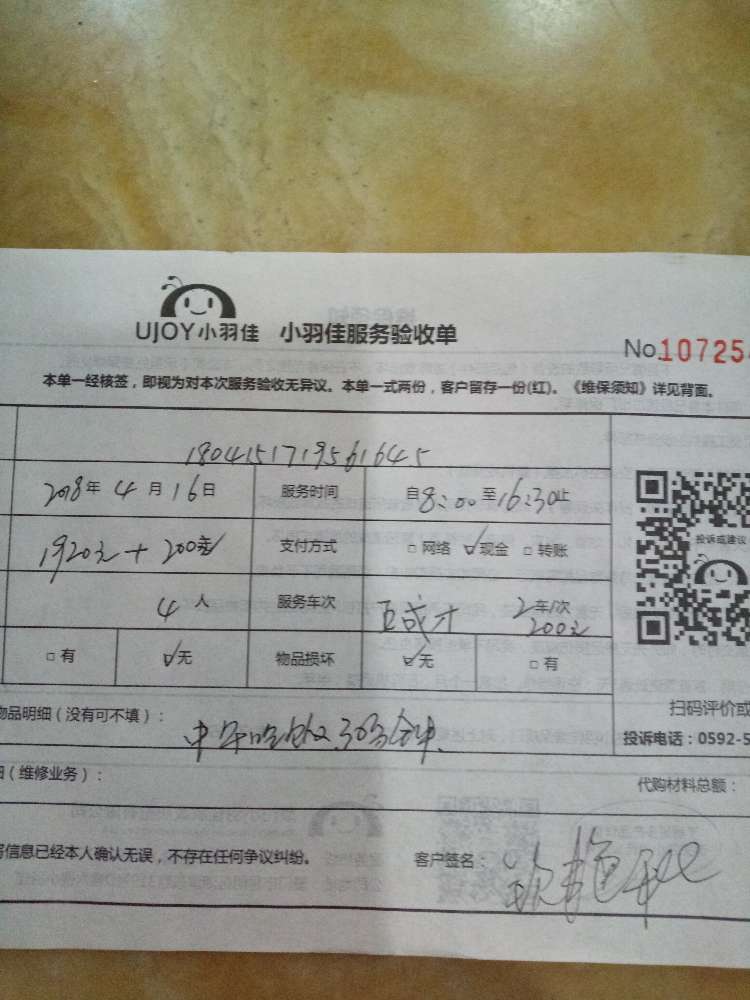 UJOY小羽佳 小羽佳服务验收单
No.107254
本单一经核签，即视为对本次服务验收无异议。本单一式两份，客户留存一份(红)。《维保须知》详见背面。
1804151719561645
2018年 4 月 16 日 服务时间 自8:00至16:30止
1920元+200元 支付方式 □ 网络 ☑ 现金 □ 转账
投诉或建议
4 人 服务车次 2 车/次
200元
□ 有 ☑ 无 物品损坏 ☑ 无 □ 有
扫码评价或
物品明细（没有可不填）： 中午吃饭30分钟
投诉电话：0592-5
（维修业务）： 代购材料总额：
信息已经本人确认无误，不存在任何争议纠纷。 客户签名：